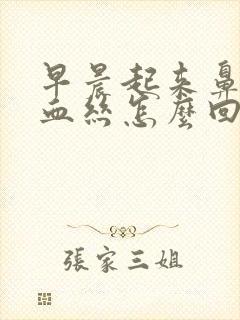 早晨起来鼻
血絲怎麼回
張家三姐